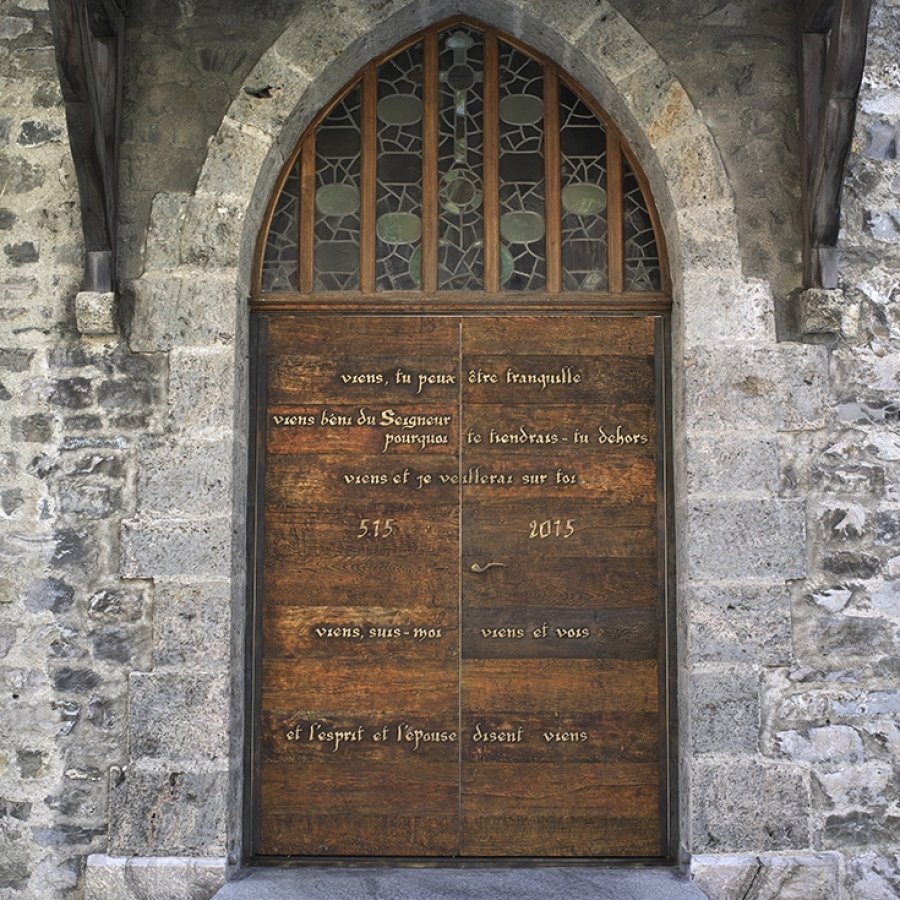 viens, tu peux être tranquille
viens béni du Seigneur
pourquoi te tiendrais-tu dehors
viens et je veillerai sur toi
515 2015
viens, suis-moi viens et vois
et l'esprit et l'épouse disent viens